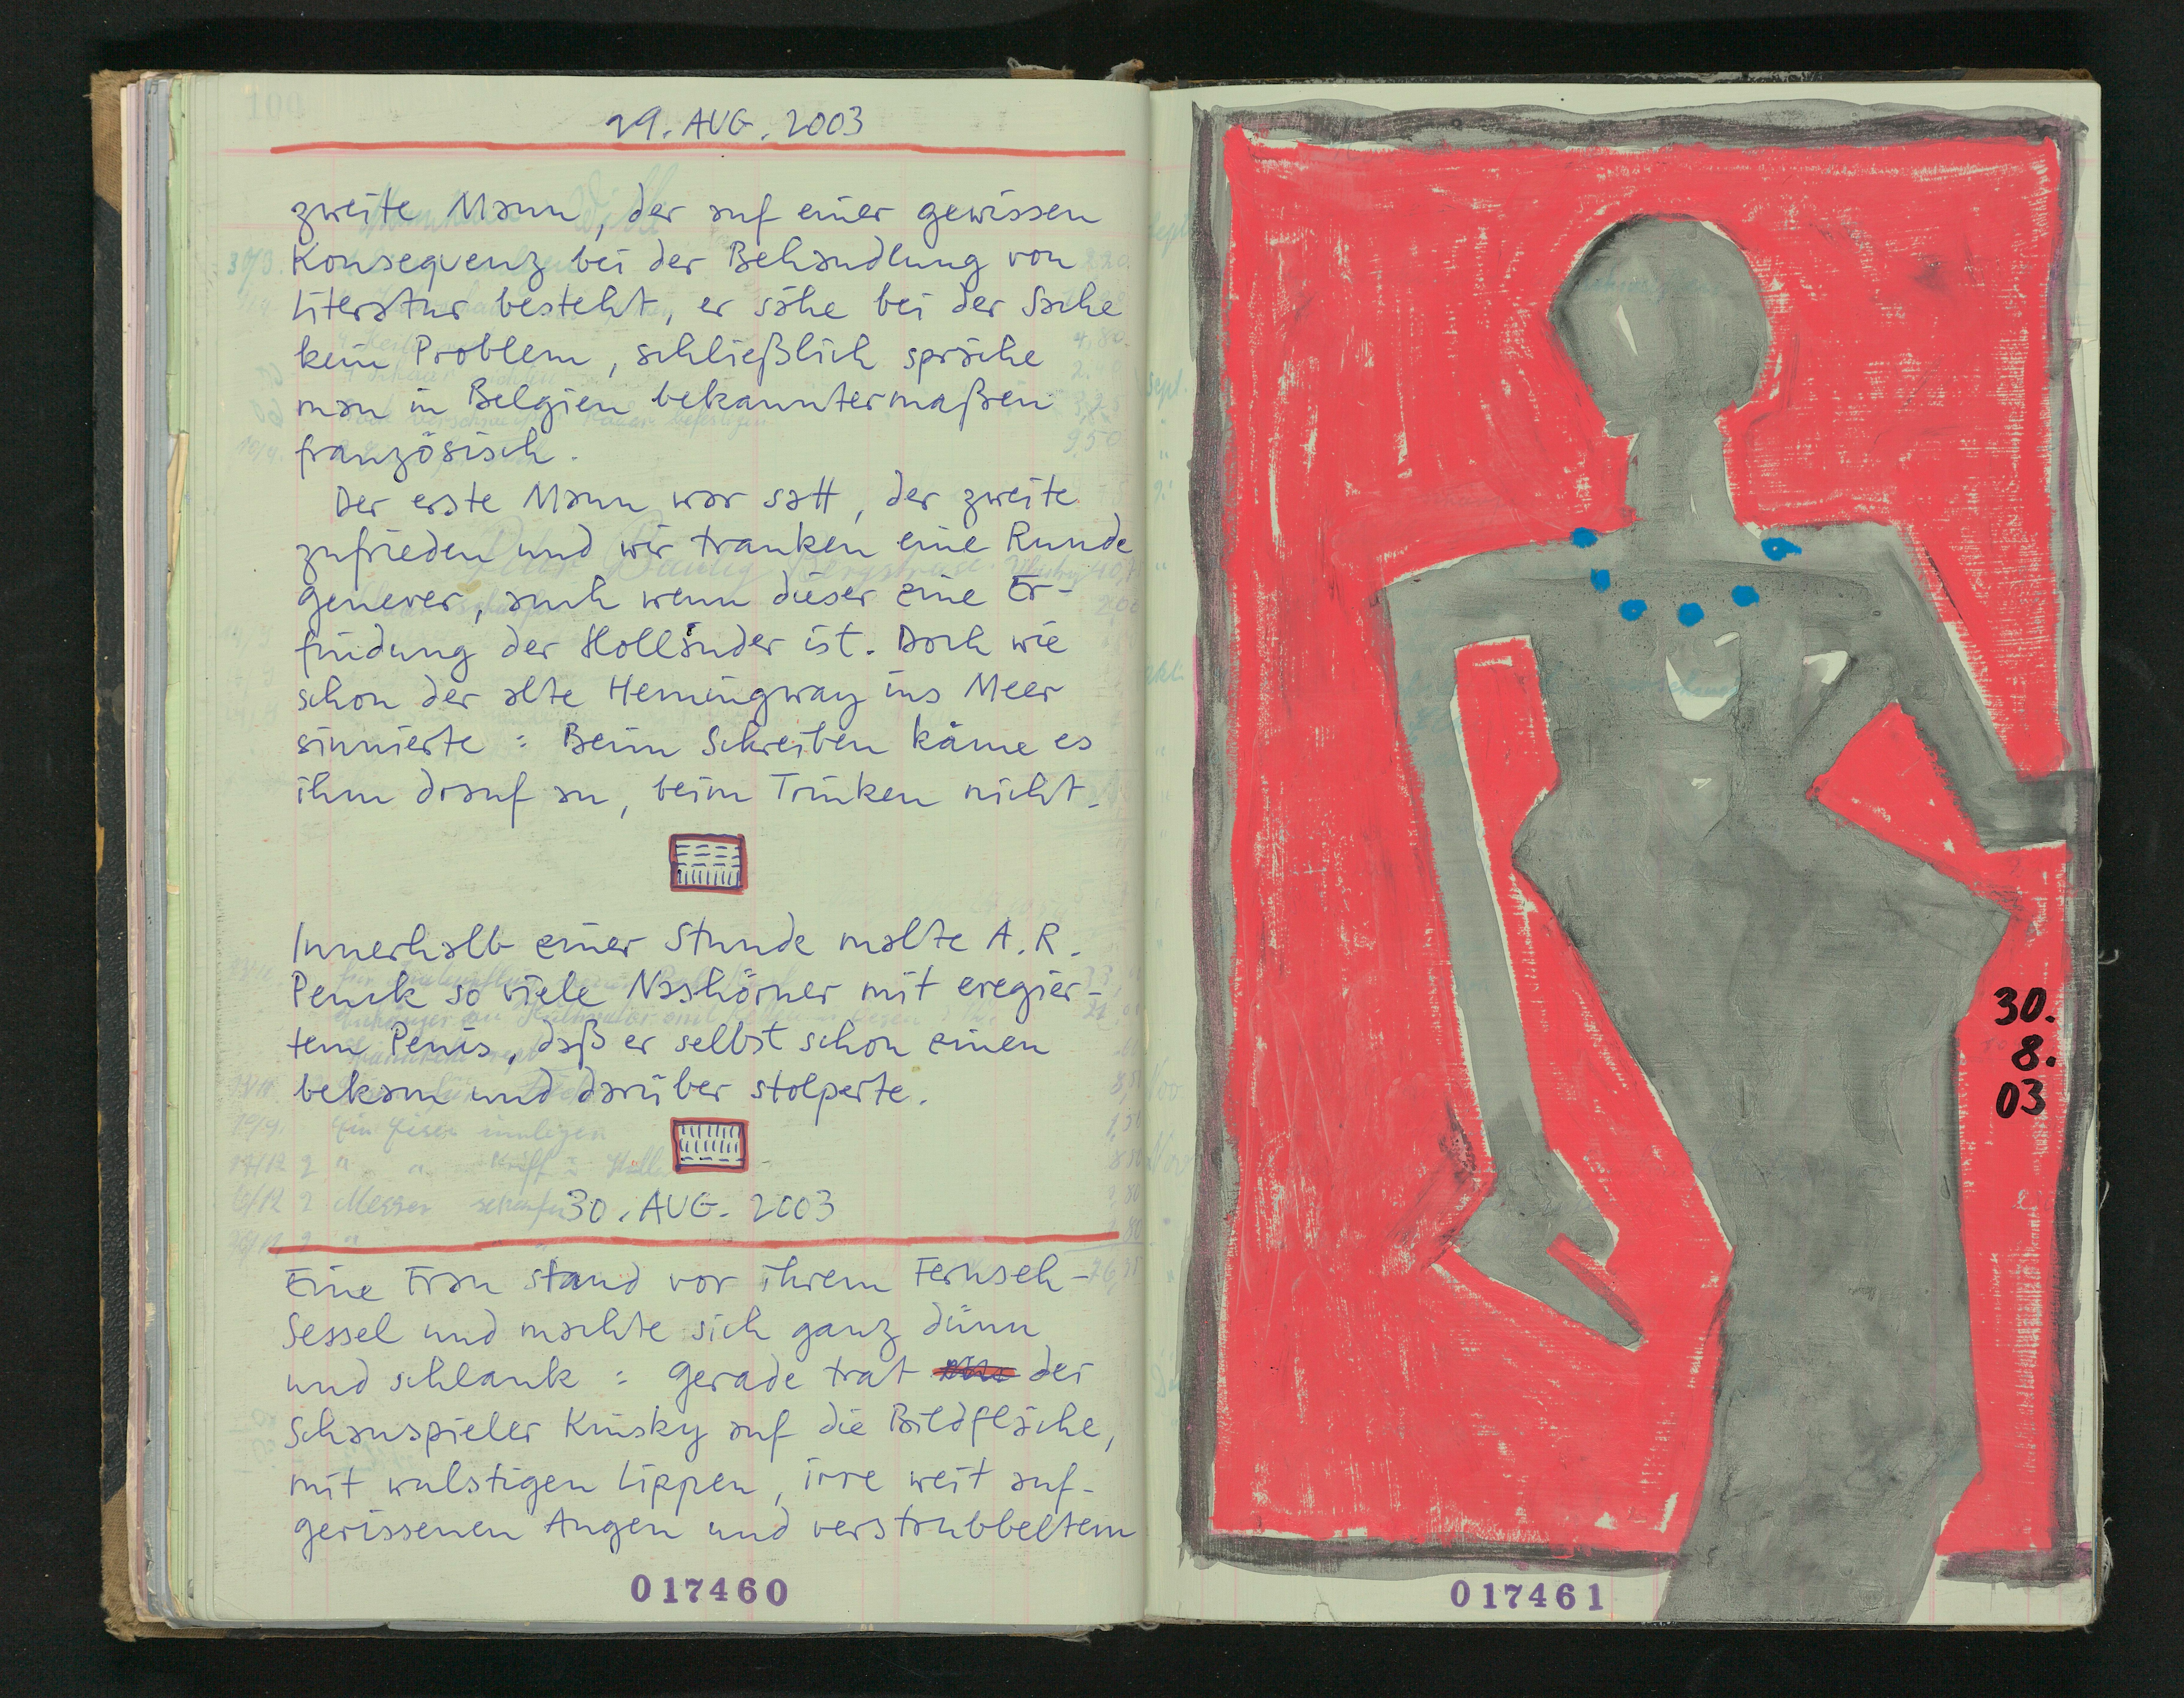 100
29. AUG. 2003
zweite Mann, der auf einer gewissen
Konsequenz bei der Behandlung von
Literatur besteht, er sähe bei der Sache
kein Problem, schließlich spräche
man in Belgien bekanntermaßen
französisch.
Der erste Mann war satt, der zweite
zufrieden und wir tranken eine Runde
Genever, auch wenn dieser eine Er-
findung der Holländer ist. Doch wie
schon der alte Hemingway ins Meer
sinnierte: Beim Schreiben käme es
ihm drauf an, beim Trinken nicht.
Innerhalb einer Stunde malte A.R.
Penck so viele Nashörner mit eregier-
tem Penis, daß er selbst schon einen
bekam und darüber stolperte.
30. AUG. 2003
Eine Frau stand vor ihrem Fernseh-
Sessel und machte sich ganz dünn
und schlank: Gerade trat der
Schauspieler Kinsky auf die Bildfläche,
mit wulstigen Lippen, irre weit auf-
gerissenen Augen und verstrubbeltem
017460
30.
8.
03
017461